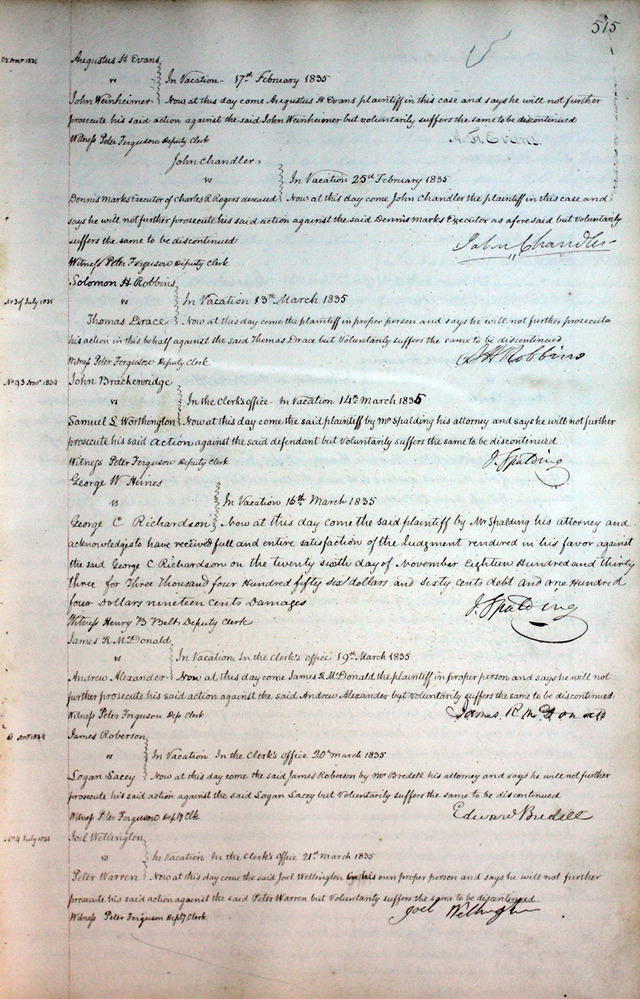 515
Augustus H Evans
vs In Vacation - 17th February 1835
John Weinheimer Now at this day come Augustus H Evans plaintiff in this case and says he will not further
prosecute his said action against the said John Weinheimer but voluntarily suffers the same to be discontinued
Witness Peter Ferguson Deputy Clerk A. H. Evans
John Chandler
vs In Vacation 25th February 1835
Dennis Marks Executor of Charles R Rogers deceased Now at this day come John Chandler the plaintiff in this case and
says he will not further prosecute his said action against the said Dennis Marks Executor as aforesaid but Voluntarily
suffers the same to be discontinued
John Chandler
Witness Peter Ferguson Deputy Clerk
Solomon H Robbins
No 37 July 1835 vs In Vacation 13th March 1835
Thomas Grace Now at this day come the plaintiff in proper person and says he will not further prosecute
his action in this behalf against the said Thomas Grace but Voluntarily suffers the same to be discontinued
Witness Peter Ferguson Deputy Clerk S H Robbins
No 93 Novr 1834 John Brackenridge
vs In the Clerk's office - In Vacation 14th March 1835
Samuel S Worthington Now at this day come the said plaintiff by Mr Spalding his attorney and says he will not further
prosecute his said action against the said defendant but Voluntarily suffers the same to be discontinued
Witness Peter Ferguson Deputy Clerk J. Spalding
George W Himes
vs In Vacation 16th March 1835
George C Richardson Now at this day come the said plaintiff by Mr Spalding his attorney and
acknowledges to have received full and entire satisfaction of the Judgment rendered in his favor against
the said George C Richardson on the twenty sixth day of November Eighteen Hundred and thirty
three for Three Thousand four Hundred fifty six dollars and sixty cents debt and one Hundred
four Dollars nineteen Cents Damages J. Spalding
Witness Henry B Belt Deputy Clerk
James R McDonald
vs In Vacation In the Clerk's office 19th March 1835
Andrew Alexander Now at this day come James R McDonald the plaintiff in proper person and says he will not
further prosecute his said action against the said Andrew Alexander but Voluntarily suffers the same to be discontinued
Witness Peter Ferguson Dep Clerk James R McDonald
James Roberson
vs In Vacation In the Clerk's Office 20th March 1835
Logan Lacey Now at this day come the said James Roberson by Mr Bredell his attorney and says he will not further
prosecute his said action against the said Logan Lacey but Voluntarily suffers the same to be discontinued
Witness Peter Ferguson Depty Clk Edward Bredell
No 4 July 1835 Joel Wellington
vs In Vacation In the Clerk's Office 21st March 1835
Peter Warren Now at this day come the said Joel Wellington by his own proper person and says he will not further
prosecute his said action against the said Peter Warren but Voluntarily suffers the same to be discontinued
Witness Peter Ferguson Depty Clerk Joel Wellington